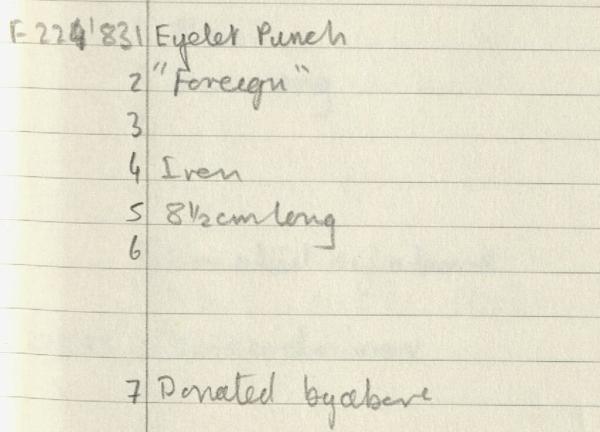 F 224'83 1 Eyelet Punch
2 "Foreign"
3
4 Iron
5 8½cm long
6
7 Donated by above